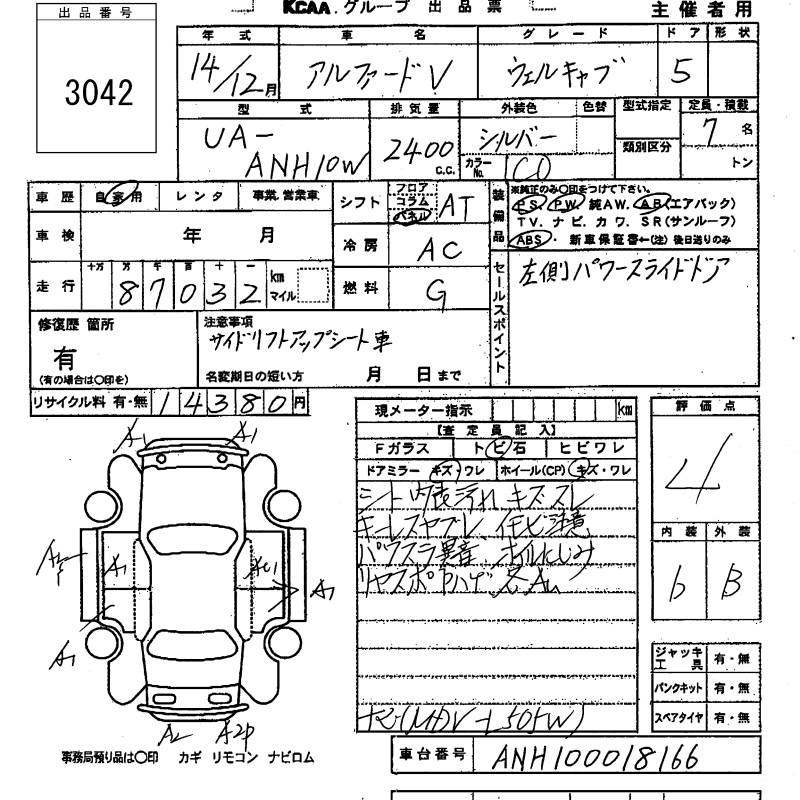 KCAA グループ 出品票
主催者用
出品番号
3042
年式 車名 グレード ドア 形状
14/12月 アルファードV ウェルキャブ 5
型式 排気量 外装色 色替 型式指定 定員・積載
UA-ANH10W 2400 C.C. シルバー 7名
カラーNo. 1C0 類別区分 トン
車歴 自家用 レンタ 事業、営業車 シフト フロア コラム パネル AT
装備品 ※純正のみ○印をつけて下さい。
PS、PW、純AW、AB(エアバック)
TV、ナビ、カワ、SR(サンルーフ)
ABS・新車保証書←(注)後日送りのみ
車検 年 月 冷房 AC
走行 十万 万 千 百 十 一 km マイル
87032
燃料 G
セールスポイント
左側パワースライドドア
修復歴 箇所
有
(有の場合は○印を)
注意事項
サイドリフトアップシート車
名変期日の短い方 月 日まで
リサイクル料 有・無 14380円
現メーター指示 km
【査定員記入】
Fガラス トビ石 ヒビワレ
ドアミラー キズ・ワレ ホイール(CP) キズ・ワレ
シート内装汚れ キズ スレ
キーレスヤブレ
パワスラ異音 オイルにじみ
評価点
4
内装 外装
b B
ジャッキ工具 有・無
パンクキット 有・無
スペアタイヤ 有・無
A1 A1
A1
A1
A1
A2 A2P
事務局預り品は○印 カギ リモコン ナビロム
車台番号 ANH100018166